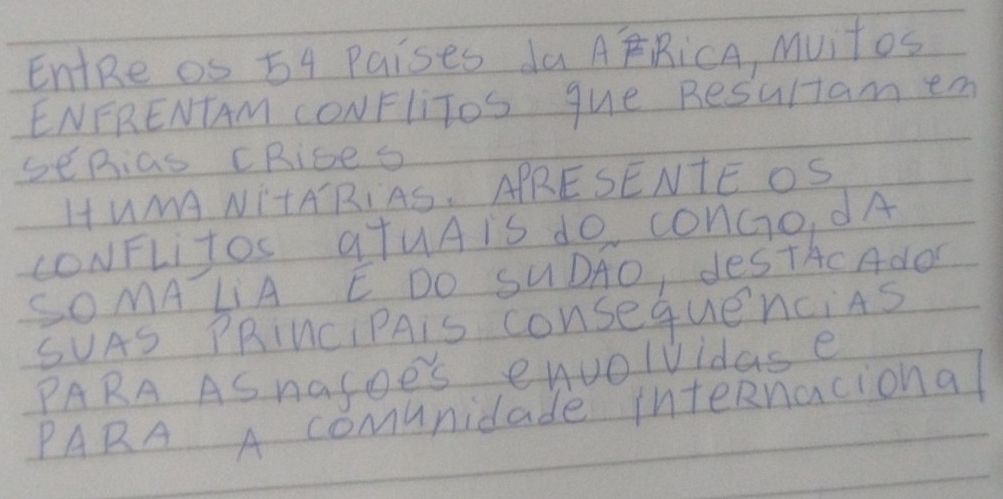 EntRe os 54 Países da AFRICA, MUitos
ENFRENTAM CONFLiTOS que Resultam em
séRias CRises
HUMANiTÁRiAS. APRESENTE OS
CONFLiTOS atuAis do CONGO, dA
SOMALiA E DO SUDÃO, desTAcAdor
SUAS PRINCiPAiS consequênciAS
PARA AS nações envolvidas e
PARA A comunidade inteRnacional